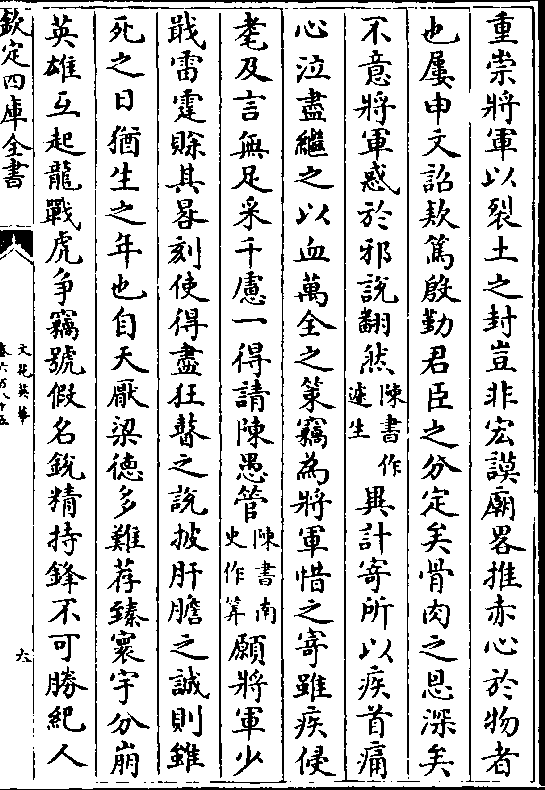 重崇將軍以裂土之封豈非宏謨廟畧推赤心於物者
也屢申文詔款篤殷勤君臣之分定矣骨肉之恩深矣
不意將軍惑於邪說翻然陳書作遽生異計寄所以疾首痛
心泣盡繼之以血萬全之策竊為將軍惜之寄雖疾侵
耄及言無足采千慮一得請陳愚管陳書南史作筭願將軍少
戢雷霆賖其晷刻使得盡狂瞽之說披肝膽之誠則雖
死之日猶生之年也自天厭梁德多難荐臻寰宇分崩
英雄互起龍戰虎争竊號假名銳精持鋒不可勝紀人
欽定四庫全書
文苑英華
卷六百八十五
六